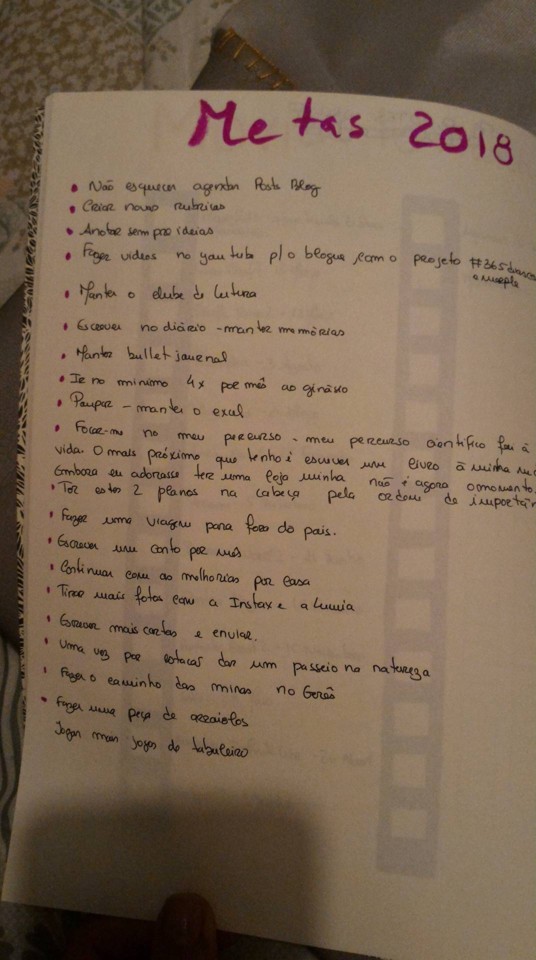 Metas 2018
• Não esquecer agendar Posts Blog
• Criar novas rubricas
• Anotar sempre ideias
• Fazer vídeos no youtube p/ o blogue, com o projeto #365
• Manter o clube de leitura
• Escrever no diário - manter memórias
• Manter bullet journal
• Ir no mínimo 4x por mês ao ginásio
• Poupar - manter o excel
• Focar-me no meu percurso - meu percurso científico foi à
vida. O mais próximo que tenho é escrever um livro à minha
Embora eu adorasse ter uma loja minha não é agora o momento.
• Ter estes 2 planos na cabeça pela ordem de
• Fazer uma viagem para fora do país.
• Escrever um conto por mês
• Continuar com as melhorias por casa
• Tirar mais fotos com a Instax e a Lumia
• Escrever mais cartas e enviar.
• Uma vez por estação dar um passeio na natureza
• Fazer o caminho das minas no Gerês
• Fazer uma peça de arraiolos
Jogar mais jogos de tabuleiro